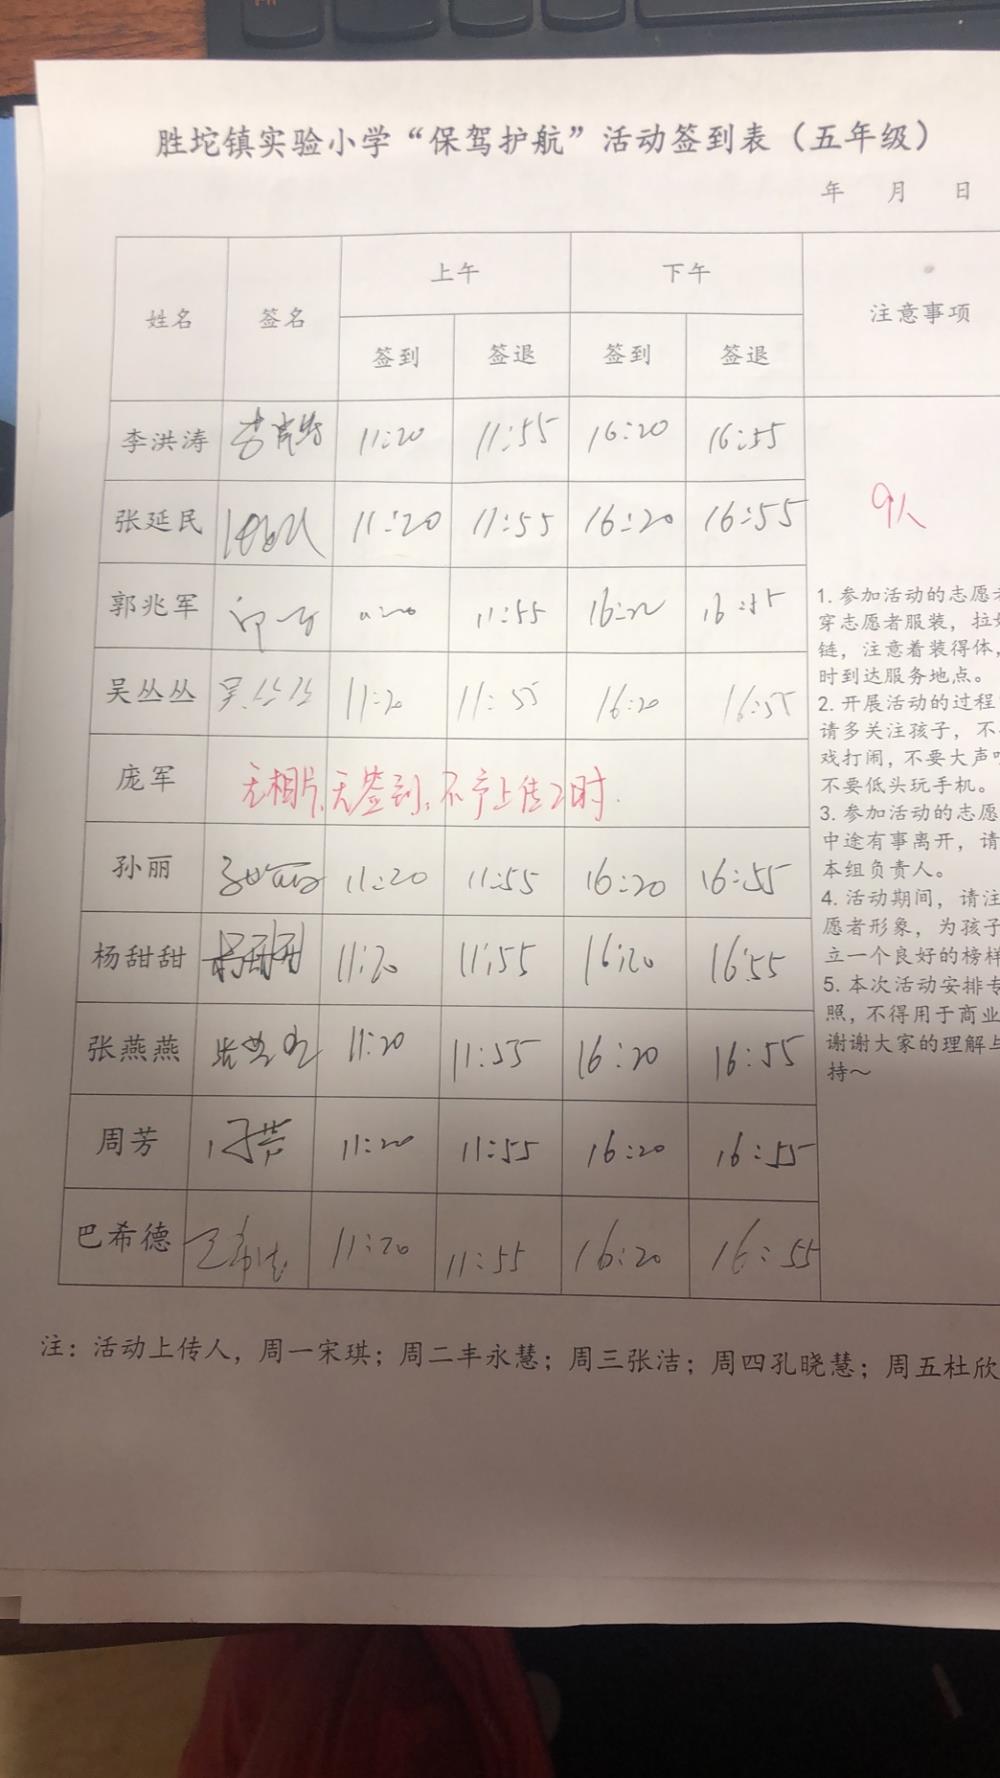 胜坨镇实验小学“保驾护航”活动签到表（五年级）
年 月 日
姓名 签名 上午 下午 注意事项
签到 签退 签到 签退
李洪涛 11:20 11:55 16:20 16:55
张延民 11:20 11:55 16:20 16:55
9人
郭兆军 11:55 16:20 16:55
吴丛丛 吴丛丛 11:20 11:55 16:20 16:55
庞军 无相片,无签到,不予上传2时.
孙丽 11:20 11:55 16:20 16:55
杨甜甜 杨甜甜 11:20 11:55 16:20 16:55
张燕燕 11:20 11:55 16:20 16:55
周芳 周芳 11:20 11:55 16:20 16:55
巴希德 巴希德 11:20 11:55 16:20 16:55
1. 参加活动的志愿者
穿志愿者服装，拉
链，注意着装得体，
时到达服务地点。
2. 开展活动的过程
请多关注孩子，不
戏打闹，不要大声
不要低头玩手机。
3. 参加活动的志愿
中途有事离开，请
本组负责人。
4. 活动期间，请注
愿者形象，为孩子
立一个良好的榜样
5. 本次活动安排专
照，不得用于商业
谢谢大家的理解与
持～
注：活动上传人，周一宋琪；周二丰永慧；周三张洁；周四孔晓慧；周五杜欣